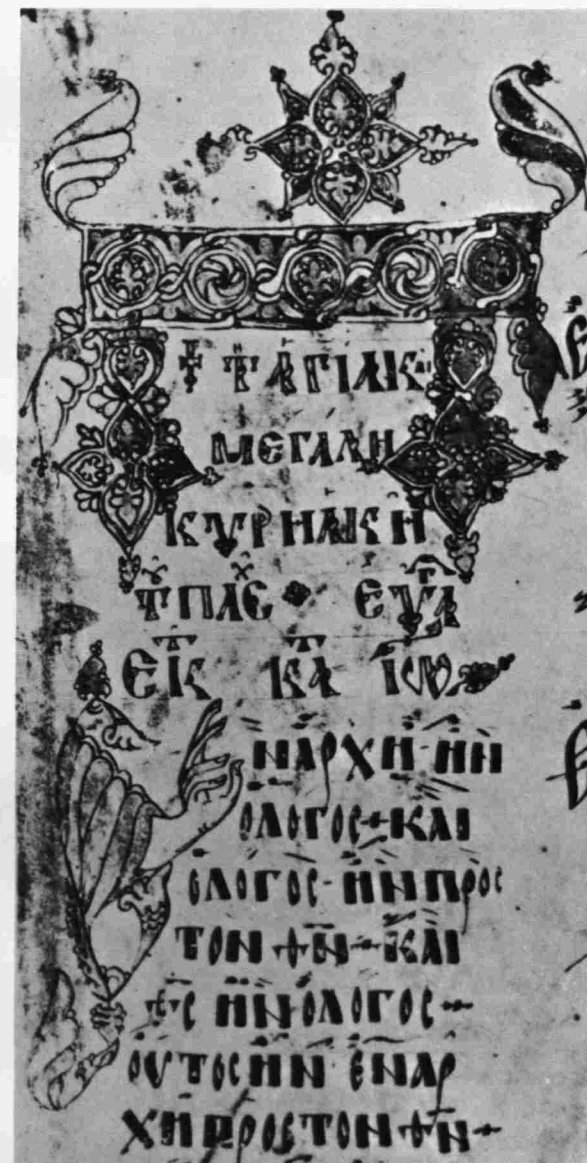 Τῌ ἉΓΙΑ Κ(ΑΙ)
ΜΕΓΑΛΗ
ΚΥΡΗΑΚΗ
Τ ΠΑϹ ΕΥΑ
ΕΚ ΚΑ ΙΩ
ΝΑΡΧΗ ΗΝ
ΟΛΟΓΟϹ ΚΑΙ
ΟΛΟΓΟϹ ΗΝ ΠΡΟϹ
ΤΟΝ ΘΝ ΚΑΙ
ΘϹ ΗΝ ΟΛΟΓΟϹ
ΟΥΤΟϹ ΗΝ ΕΝΑΡ
ΧΗ ΠΡΟϹ ΤΟΝ ΘΝ